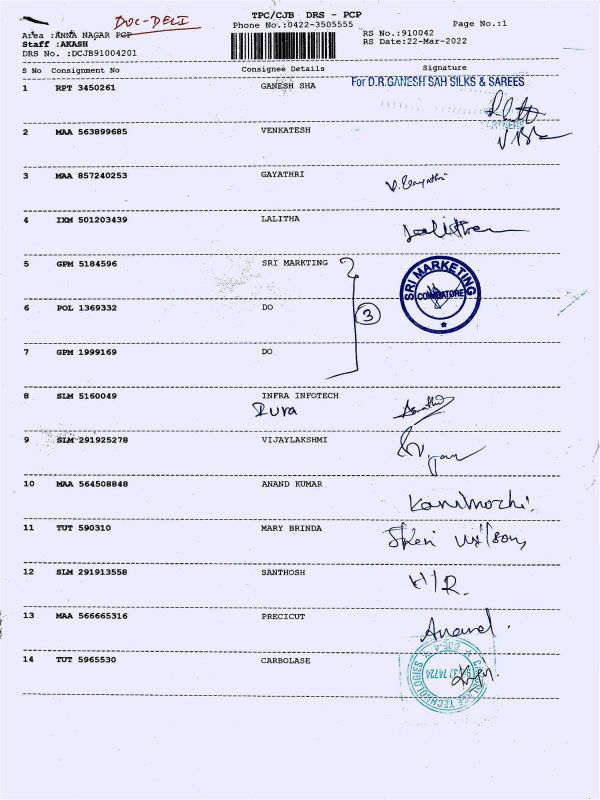 DOC-DELI
TPC/CJB DRS - PCP
Area :ANNA NAGAR PCP
Phone No.:0422-3505555
Page No.:1
Staff :AKASH
RS No.:910042
DRS No. :DCJB91004201
RS Date:22-Mar-2022
S No Consignment No Consignee Details Signature
1 RPT 3450261 GANESH SHA For D.R.GANESH SAH SILKS & SAREES
PARTNERS
2 MAA 563899685 VENKATESH
3 MAA 857240253 GAYATHRI V. Gayathri
4 IXM 501203439 LALITHA Lalitha
5 GPM 5184596 SRI MARKTING SRI MARKETING
COIMBATORE
6 POL 1369332 DO 3
7 GPM 1999169 DO
8 SLM 5160049 INFRA INFOTECH
9 SLM 291925278 VIJAYLAKSHMI
10 MAA 564508848 ANAND KUMAR Kanimozhi.
11 TUT 590310 MARY BRINDA
12 SLM 291913558 SANTHOSH H/R.
13 MAA 566665316 PRECICUT Anand.
14 TUT 5965530 CARBOLASE